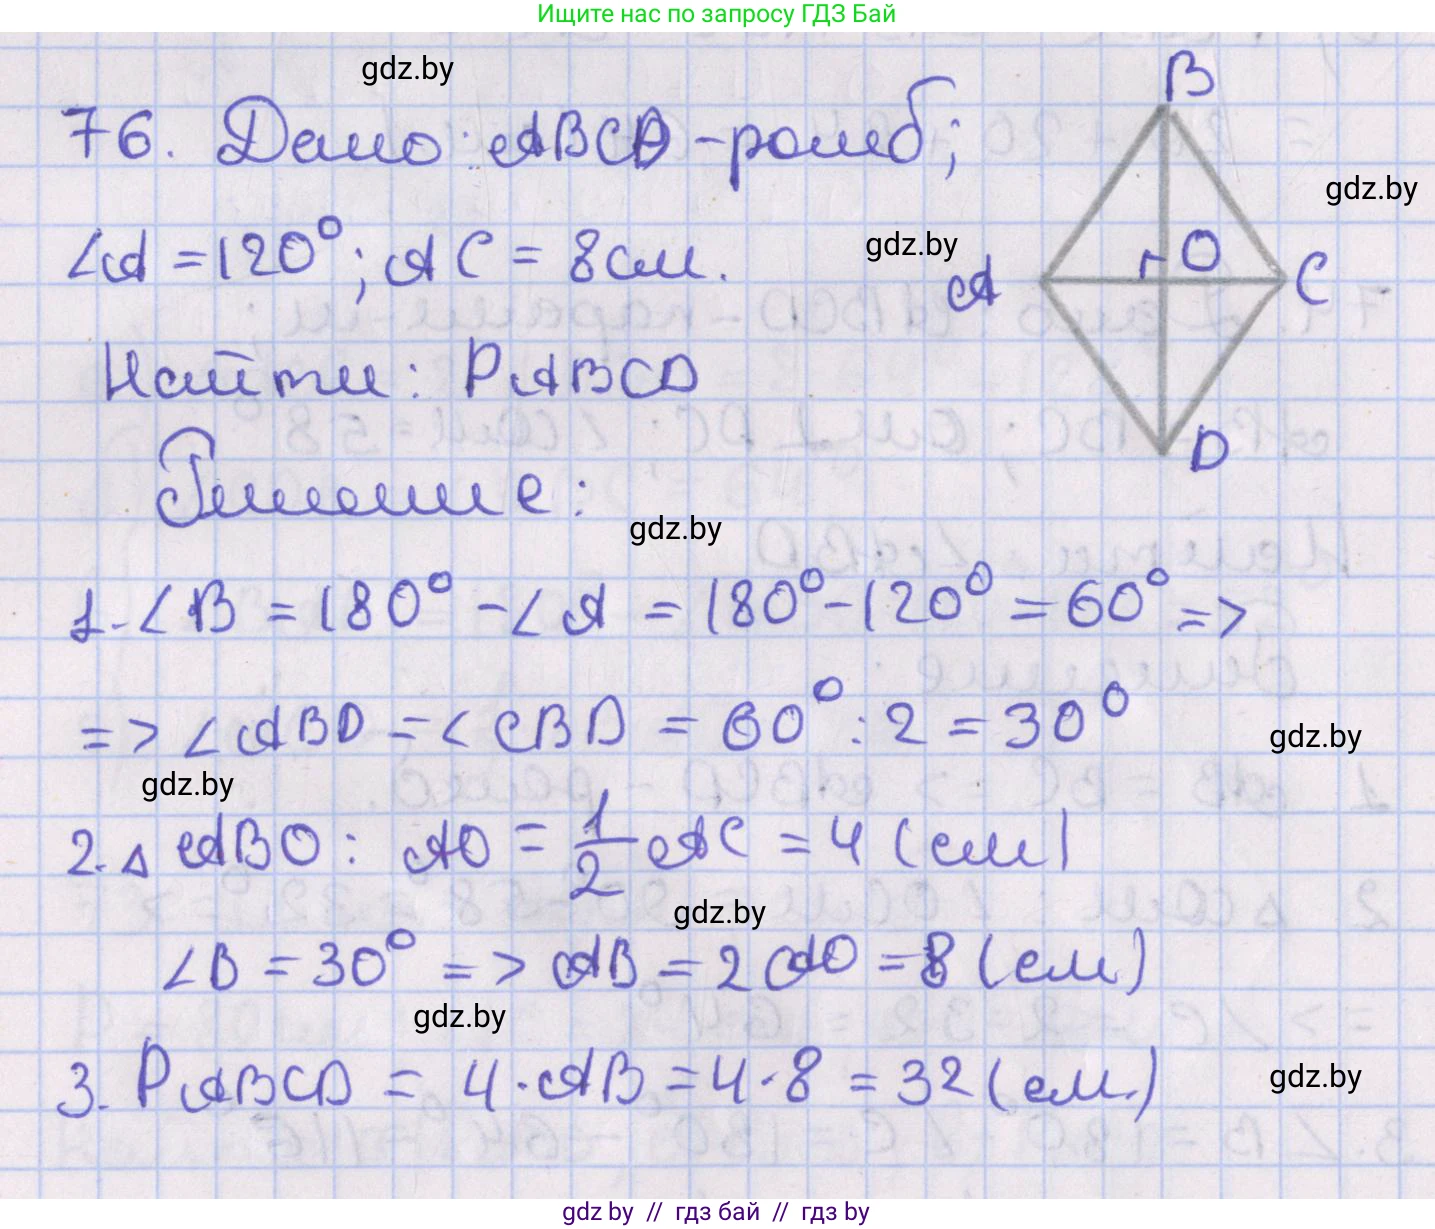 Ищите нас по запросу ГДЗ Бай
gdz.by
76. Дано: ABCD - ромб;
gdz.by
∠A = 120°; AC = 8 см.
gdz.by
B
O
A
C
D
Найти: PABCD
Решение:
gdz.by
1. ∠B = 180° - ∠A = 180° - 120° = 60° =>
=> ∠ABD = ∠CBD = 60° : 2 = 30°
gdz.by
gdz.by
2. △ ABO: AO = 1/2 AC = 4 (см)
gdz.by
∠B = 30° => AB = 2AO = 8 (см)
gdz.by
3. PABCD = 4 · AB = 4 · 8 = 32 (см.)
gdz.by
gdz.by // гдз бай // гдз by